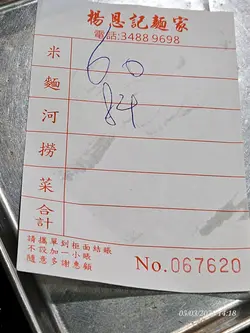 揚恩記麵家
電話:3488 9698
米 60
麵 84
河
撈
菜
合計
請攜單到柜面結賬
不設加一小賬
隨意多謝惠顧
No.067620